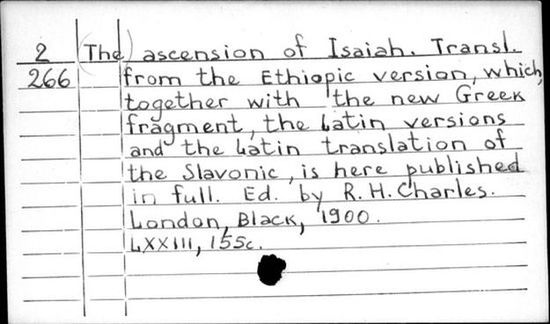 2 (The) ascension of Isaiah. Transl.
266 from the Ethiopic version, which,
together with the new Greek
fragment, the Latin versions
and the Latin translation of
the Slavonic, is here published
in full. Ed. by R.H. Charles.
London, Black, 1900.
LXXIII, 155c.